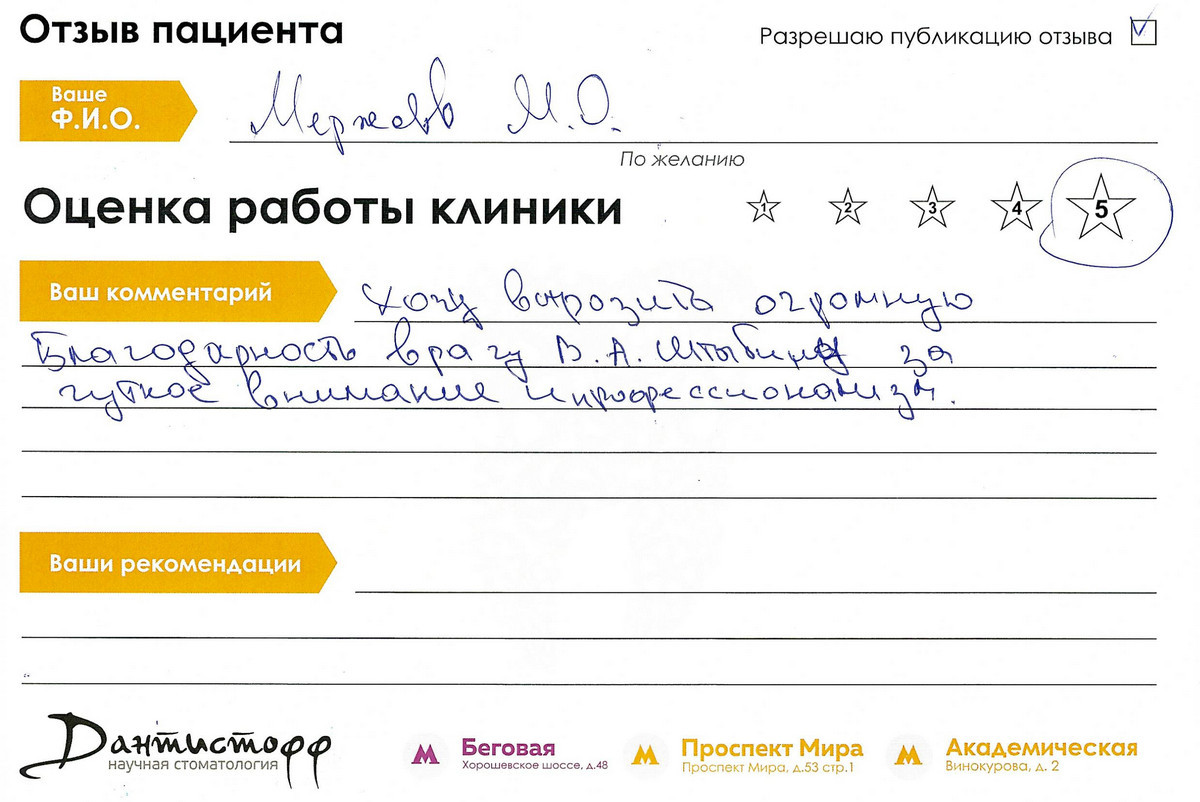 Отзыв пациента
Разрешаю публикацию отзыва
Ваше
Ф.И.О.
Мержоев М.О.
По желанию
Оценка работы клиники
1 2 3 4 5
Ваш комментарий
Хочу выразить огромную
благодарность врагу В.А. Штыбину за
чуткое внимание и профессионализм.
Ваши рекомендации
Дантистофф
научная стоматология
М Беговая
Хорошевское шоссе, д.48
М Проспект Мира
Проспект Мира, д.53 стр.1
М Академическая
Винокурова, д. 2